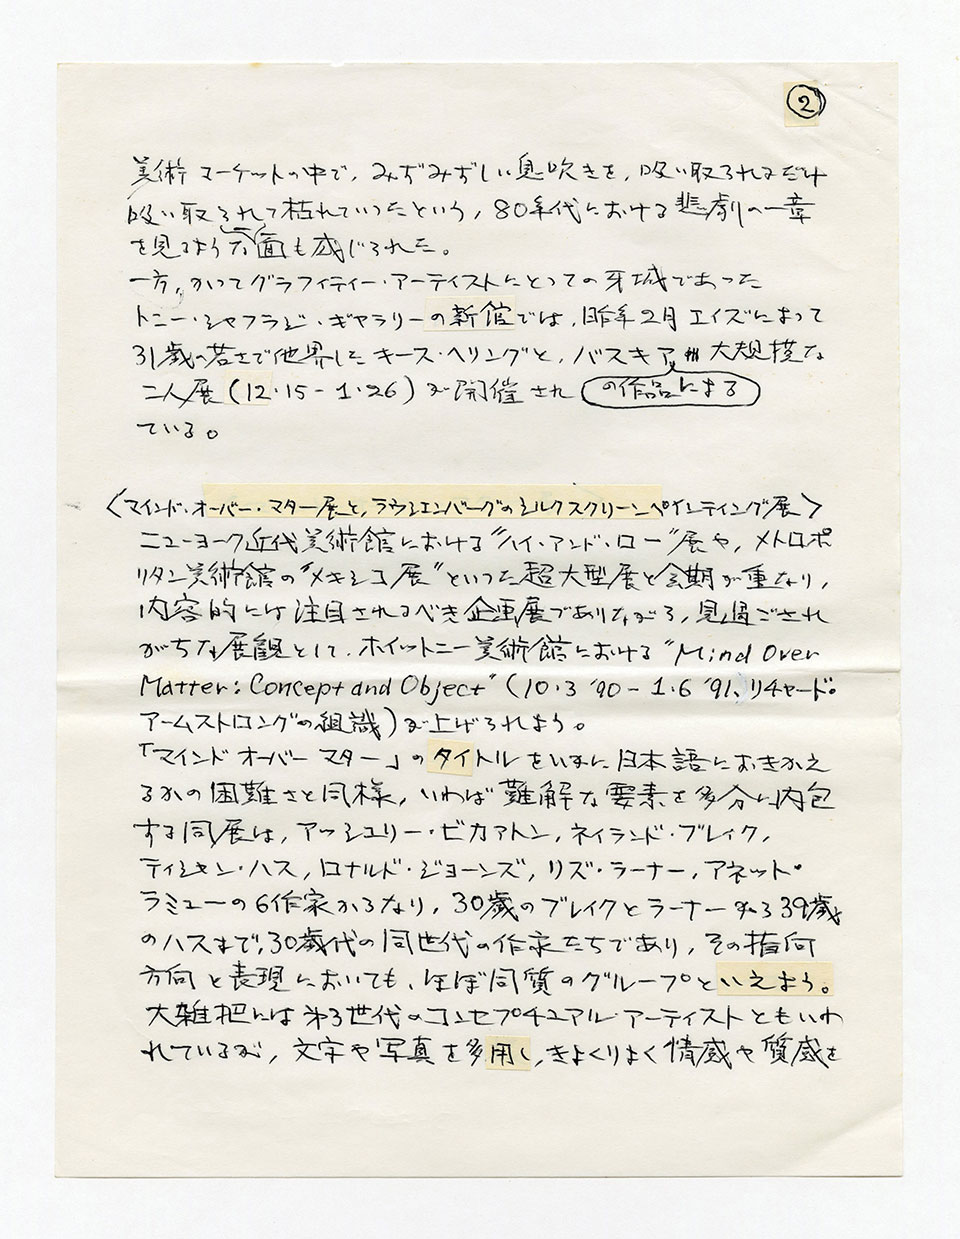 ②
美術マーケットの中で、みずみずしい息吹きを、吸い取られるだけ
吸い取られて枯れていったという、80年代における悲劇の一章
を見るような面も感じられた。
一方、かつてグラフィティー・アーティストにとっての牙城であった
トニー・シャフラジ・ギャラリーの新館では、昨年2月エイズによって
31歳の若さで他界したキース・ヘリングと、バスキアの作品による大規模な
二人展(12・15-1・26)が開催され
ている。
〈マインド・オーバー・マター展と、ラウシェンバーグのシルクスクリーンペインティング展〉
ニューヨーク近代美術館における"ハイ・アンド・ロー"展や、メトロポ
リタン美術館の"メキシコ展"といった超大型展と会期が重なり、
内容的には注目されるべき企画展でありながら、見過ごされ
がちな展観として、ホイットニー美術館における"Mind Over
Matter: Concept and Object"(10・3 '90-1・6 '91、リチャード・
アームストロングの組織)が上げられよう。
「マインド オーバー マター」のタイトルをいかに日本語におきかえ
るかの困難さと同様、いわば難解な要素を多分に内包
する同展は、アッシュリー・ビカアトン、ネイランド・ブレイク、
ティシャン・ハス、ロナルド・ジョーンズ、リズ・ラーナー、アネット・
ラミューの6作家からなり、30歳のブレイクとラーナーから39歳
のハスまで、30歳代の同世代の作家たちであり、その指向
方向と表現においても、ほぼ同質のグループといえよう。
大雑把には第3世代のコンセプチュアル・アーティストともいわ
れているが、文字や写真を多用し、きよくりよく情感や質感を